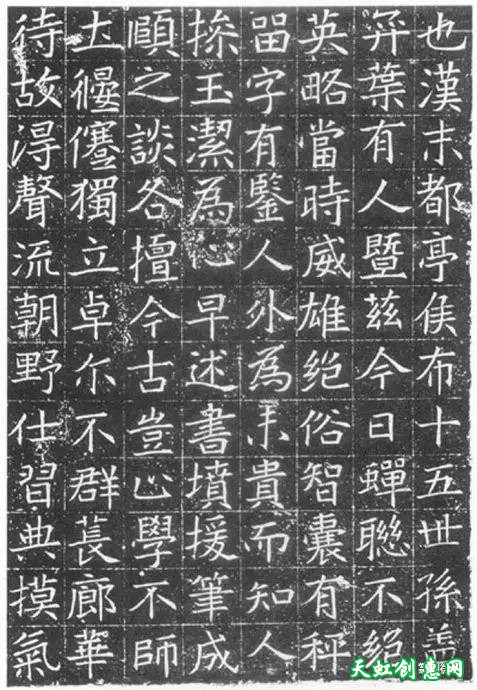 也漢末都亭侯布十五世孫盖
弈葉有人暨茲今日蟬聯不絕
英略當時威雄絕俗智囊有秤
畱字有鑒人外為貴而知人
操玉潔為心早述書墳援筆成
頤之談各擅今古豈止學不師
士偃蹇獨立卓尒不群萇廊華
待故得聲流朝野仕習典摸氣
天虹创意网